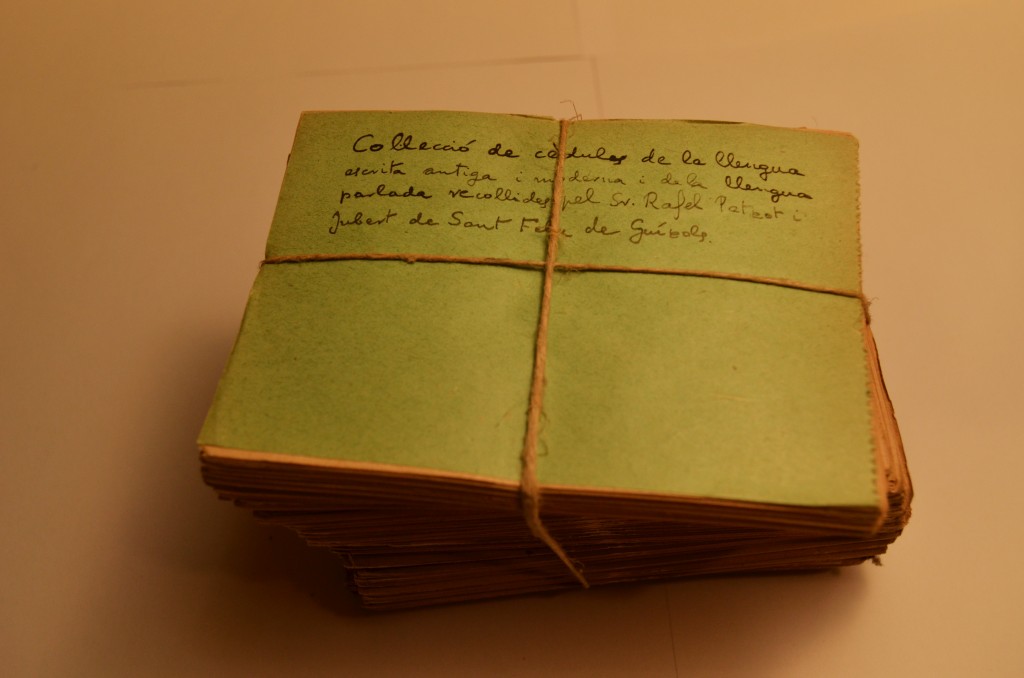 Collecció de cèdules de la llengua
escrita antiga i moderna i de la llengua
parlada recollides pel Sr. Rafel Patxot i
Jubert de Sant Feliu de Guíxols.